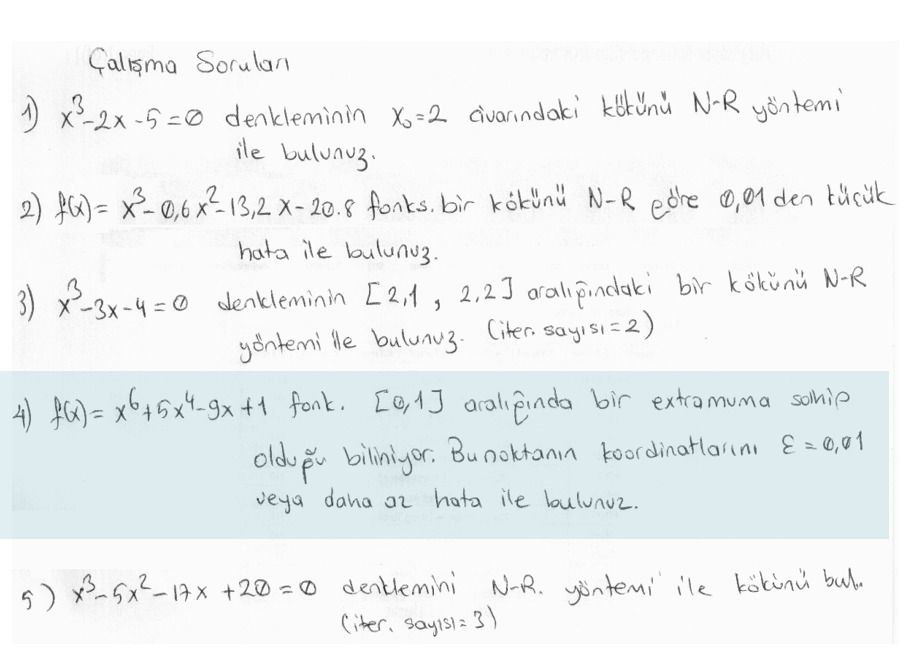 Çalışma Soruları
1) x³-2x-5=0 denkleminin x₀=2 civarındaki kökünü N-R yöntemi
ile bulunuz.
2) f(x)= x³-0,6x²-13,2x-20.8 fonks. bir kökünü N-R göre 0,01 den küçük
hata ile bulunuz.
3) x³-3x-4=0 denkleminin [2,1 , 2,2] aralığındaki bir kökünü N-R
yöntemi ile bulunuz. (iter. sayısı=2)
4) f(x)= x⁶+5x⁴-9x+1 fonk. [0,1] aralığında bir extramuma sahip
olduğu biliniyor. Bu noktanın koordinatlarını ε=0,01
veya daha az hata ile bulunuz.
5) x³-5x²-17x+20=0 denklemini N-R. yöntemi ile kökünü bul.
(iter. sayısı=3)